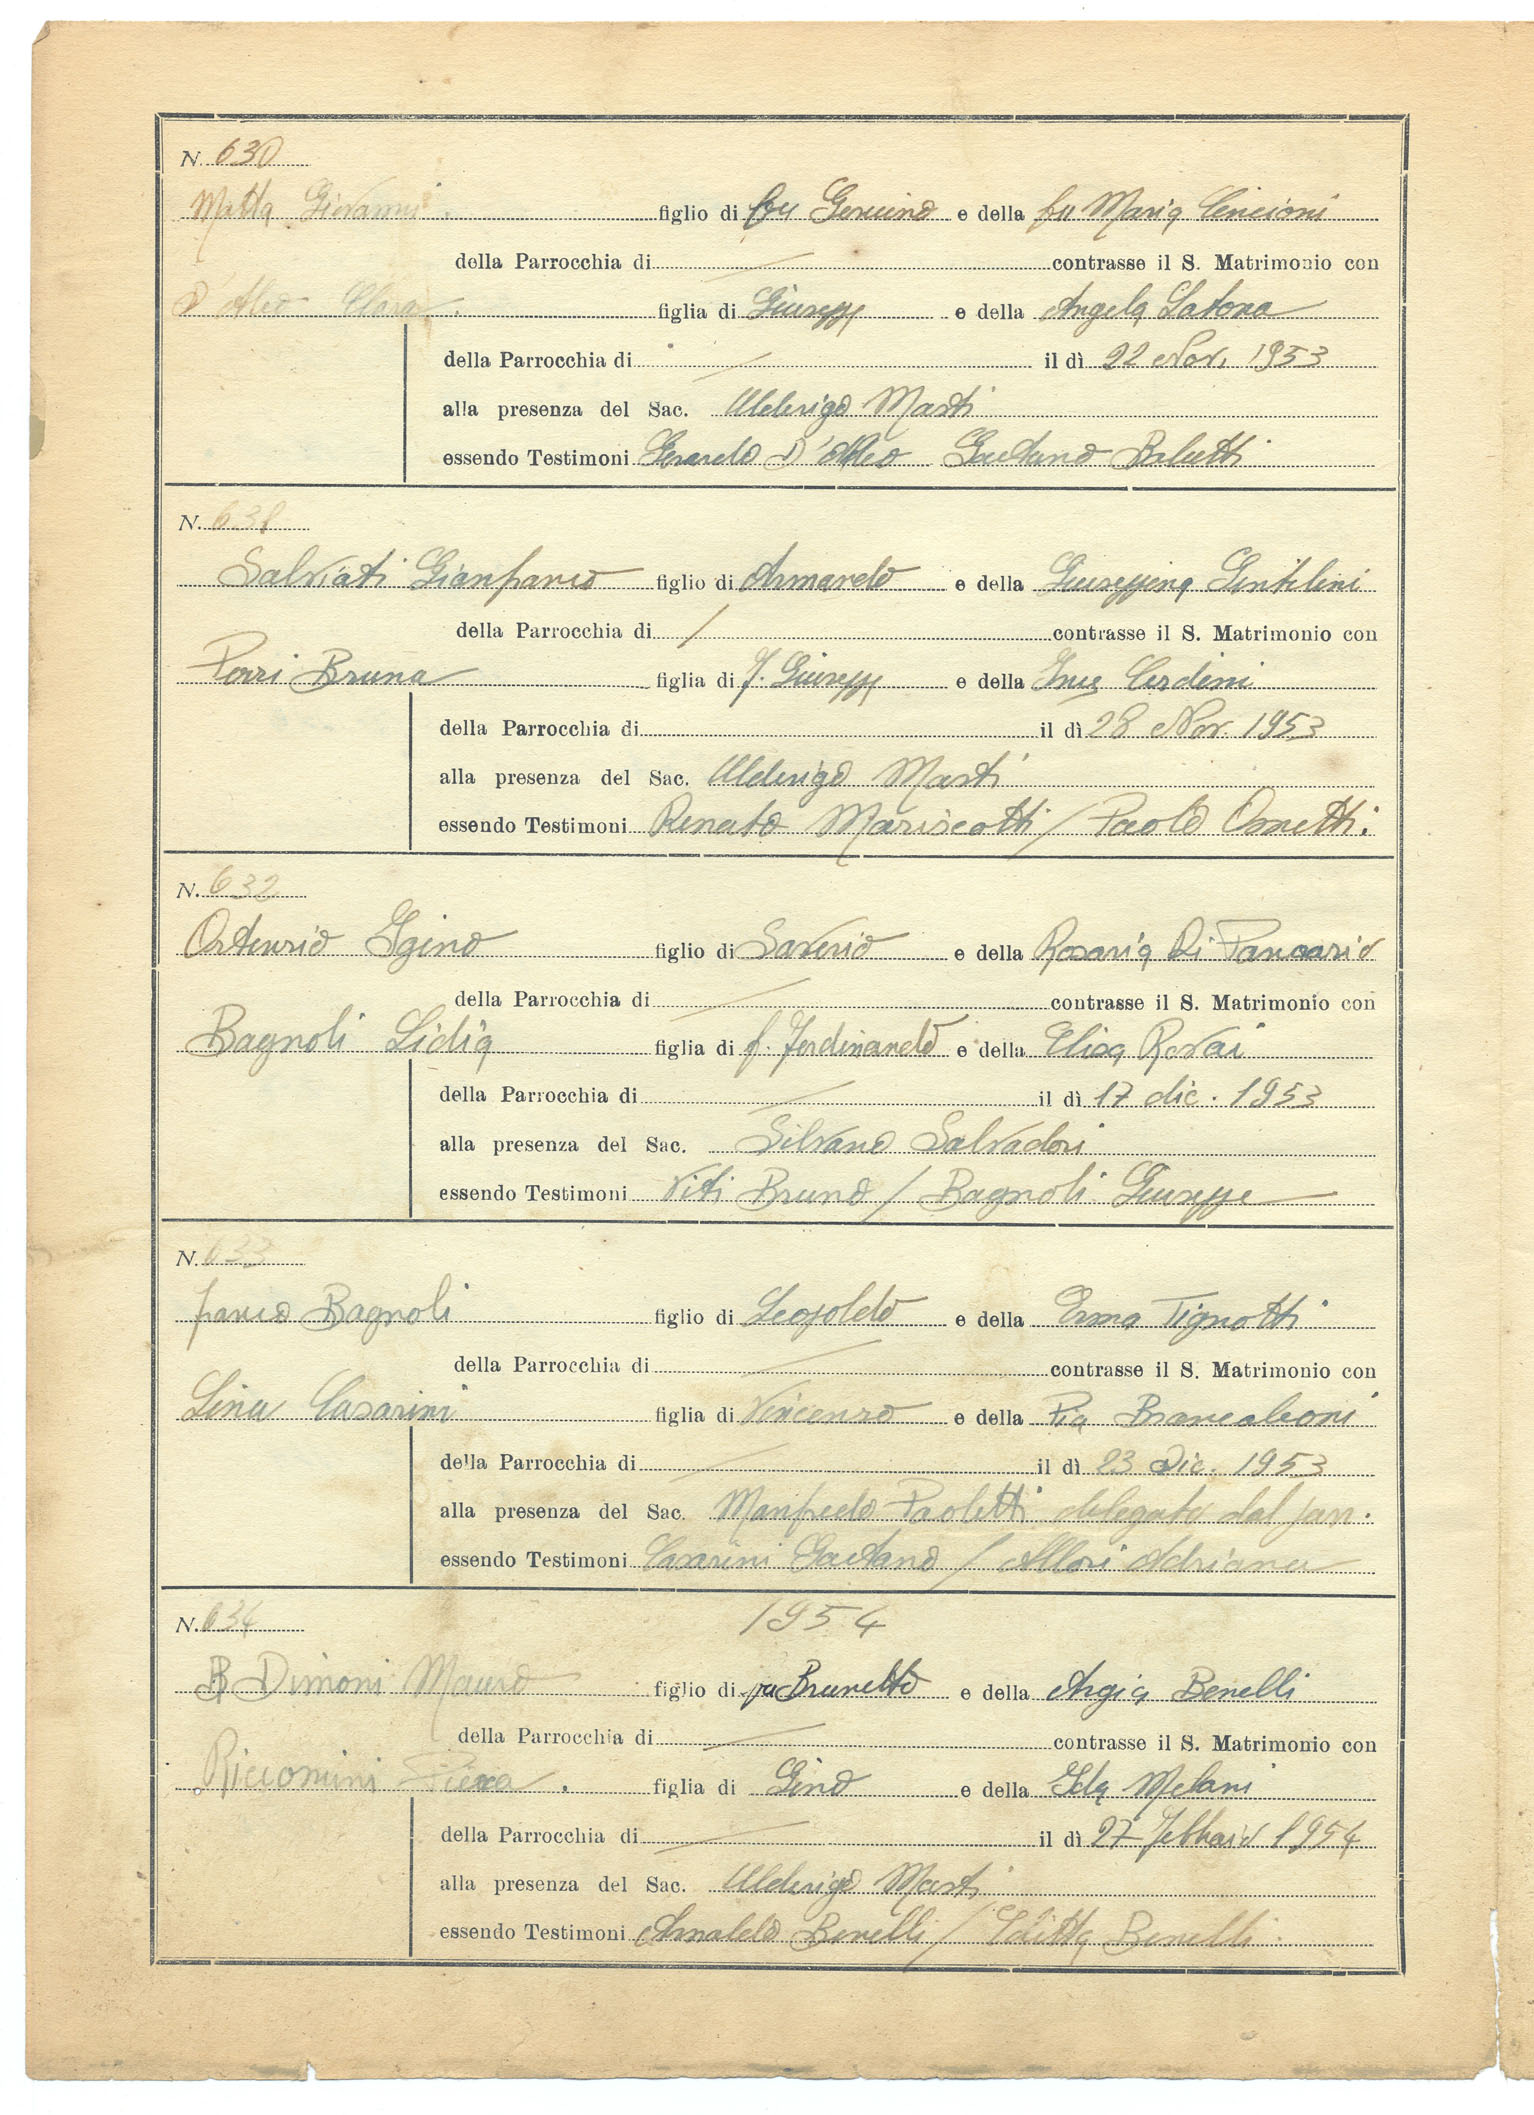 N. 630
Matta Giovanni. figlio di fu Gervino e della fu Maria Cencioni
della Parrocchia di / contrasse il S. Matrimonio con
D'Aleo Clara. figlia di Giusepp e della Angela Latona
della Parrocchia di / il dì 22 Nov. 1953
alla presenza del Sac. Alderigo Marti
essendo Testimoni Gerardo D'Aleo Gaetano
N. 631
Salviati Gianfranco figlio di Armando e della Giuseppina Gentilini
della Parrocchia di / contrasse il S. Matrimonio con
Porri Bruna figlia di f. Giusepp e della Ines Cerdini
della Parrocchia di il dì 28 Nov. 1953
alla presenza del Sac. Alderigo Marti
essendo Testimoni Renato Mariscotti / Paolo
N. 632
Ortenzio Igino figlio di Saverio e della Rosaria Di Pancrazio
della Parrocchia di / contrasse il S. Matrimonio con
Bagnoli Lidia figlia di f. Ferdinando e della Elisa Rovai
della Parrocchia di / il dì 17 dic. 1953
alla presenza del Sac. Silvano Salvadori
essendo Testimoni Viti Bruno / Bagnoli Giuseppe
N. 633
franco Bagnoli figlio di Leopoldo e della Erma Tignotti
della Parrocchia di / contrasse il S. Matrimonio con
Lina Casarini figlia di Vincenzo e della Pia Brancaleoni
della Parrocchia di / il dì 23 Dic. 1953
alla presenza del Sac. Manfredo Paoletti delegato dal parr.
essendo Testimoni Casarini Gaetano / Allori Adriana
N. 634 1954
B Dimoni Mauro figlio di fu Brunetto e della Argia Benelli
della Parrocchia di / contrasse il S. Matrimonio con
Riccomini Piera. figlia di Gino e della Ida Melani
della Parrocchia di / il dì 27 Febbraio 1954
alla presenza del Sac. Alderigo Marti
essendo Testimoni Arnaldo Benelli / Editta Benelli